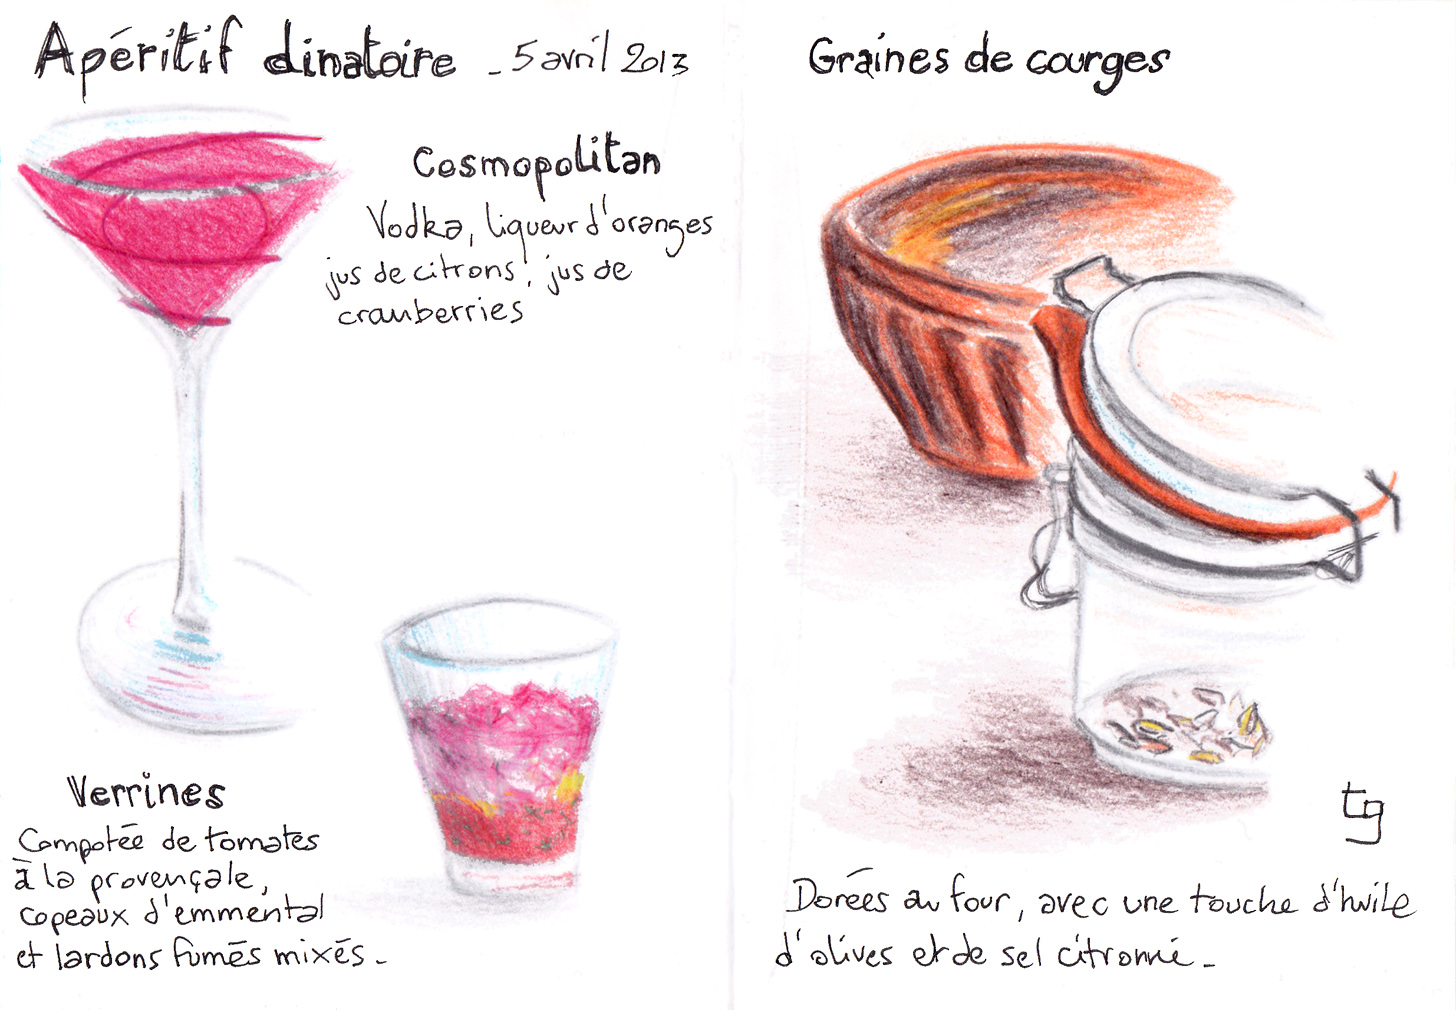 Apéritif dinatoire - 5 avril 2013
Cosmopolitan
Vodka, liqueur d'oranges
jus de citrons, jus de
cranberries
Verrines
Compotée de tomates
à la provençale,
copeaux d'emmental
et lardons fumés mixés -
Graines de courges
tg
Dorées au four, avec une touche d'huile
d'olives et de sel citronné -